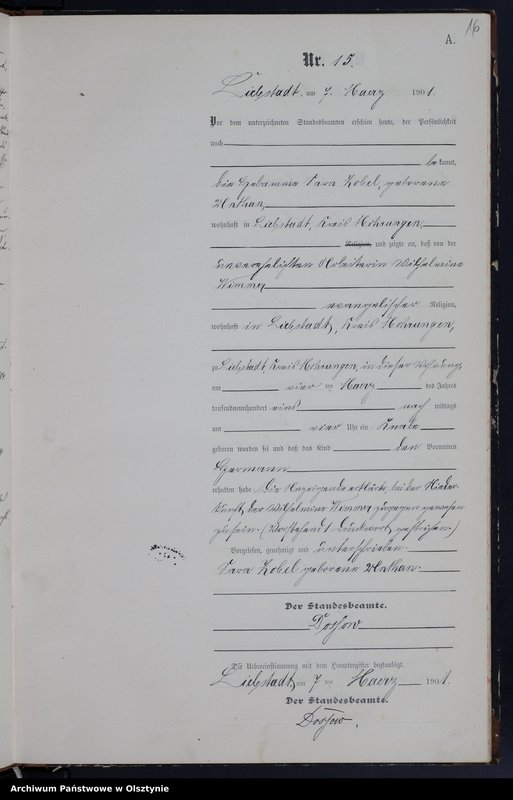 16
A.
Nr. 15.
Liebstadt, am 7. Maerz 1901.
Vor dem unterzeichneten Standesbeamten erschien heute, der Persönlichkeit
nach
bekannt,
die Hebamme Sara Zobel, geborene
wohnhaft in Liebstadt, Kreis Mohrungen,
Religion, und zeigte an, daß von der
unverehelichten Arbeiterin Wilhelmine
Wimmer
evangelischer Religion,
wohnhaft in Liebstadt, Kreis Mohrungen,
zu Liebstadt Kreis Mohrungen, in dieser Wohnung,
am vier ten Maerz des Jahres
tausendneunhundert eins nach mittags
um vier Uhr ein Knabe
geboren worden sei und daß das Kind den Vornamen
Hermann
erhalten habe. Die Anzeigende erklärte, bei der Nieder-
kunft der Wilhelmine Wimmer zugegen gewesen
zu sein. (Vorstehend 1 Druckwort gestrichen.)
Vorgelesen, genehmigt und unterschrieben.
Sara Zobel geborene
Der Standesbeamte.
Die Uebereinstimmung mit dem Hauptregister beglaubigt.
Liebstadt, am 7 ten Maerz 1901.
Der Standesbeamte.
Archiwum Państwowe w Olsztynie